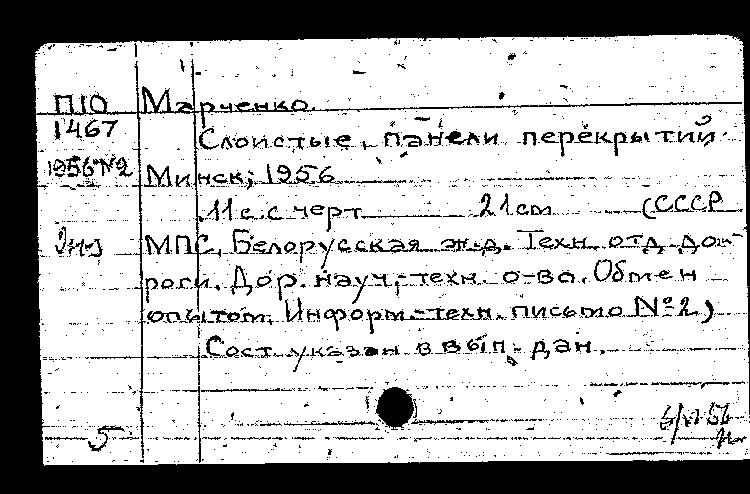 П10 Марченко.
1467 Слоистые панели перекрытий.
1956 №2 Минск, 1956
11 с. с черт 21 см (СССР
МПС. Белорусская ж.д. Техн. отд. до-
роги. Дор. науч.-техн. о-во. Обмен
опытом. Информ.-техн. письмо № 2)
Сост. указан в вып. дан.
5